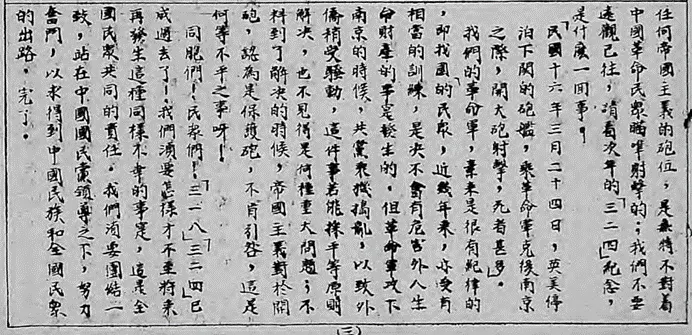 任何帝國主義的砲位，是無特不對着
中國革命民眾瞄準射擊的；我們不要
遠觀已往，請看次年的「三二四」紀念，
是什麼一回事。
民國十六年三月二十四日，英美停
泊下關的砲艦，乘革命軍克復南京
之際，開大砲射擊，死者甚多。
我們的革命軍，素來是很有紀律的
，即我國的民眾，近幾年來，亦受有
相當的訓練，是決不會有危害外人生
命財產的事是發生的。但革命軍攻下
南京的時候，共黨乘機搗亂，以致外
僑稍受騷動，這件事若能採平等原則
解決，也不見得是何種重大問題；不
料到了解決的時候，帝國主義對於開
砲，認為是保護砲，不肯引咎，這是
何等不平之事呀！
同胞們！民眾們！「三一八」「三二四」已
成過去了！我們須要怎樣才不至將來
再發生這種同樣不幸的事是，這是全
國民眾共同的責任。我們須要團結一
致，站在中國國民黨領導之下，努力
奮鬥，以求得到中國民族和全國民眾
的出路。完了。
(三)